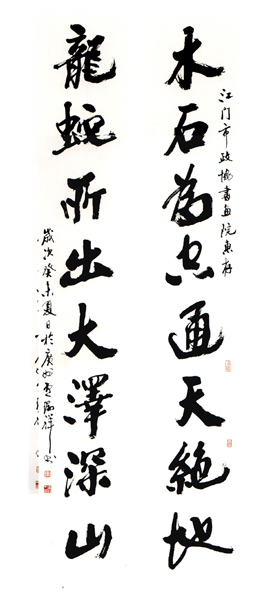 江门市政協書画院惠存
木石為空通天絶地
龍蛇所出大澤深山
歲次癸未夏日於廣州